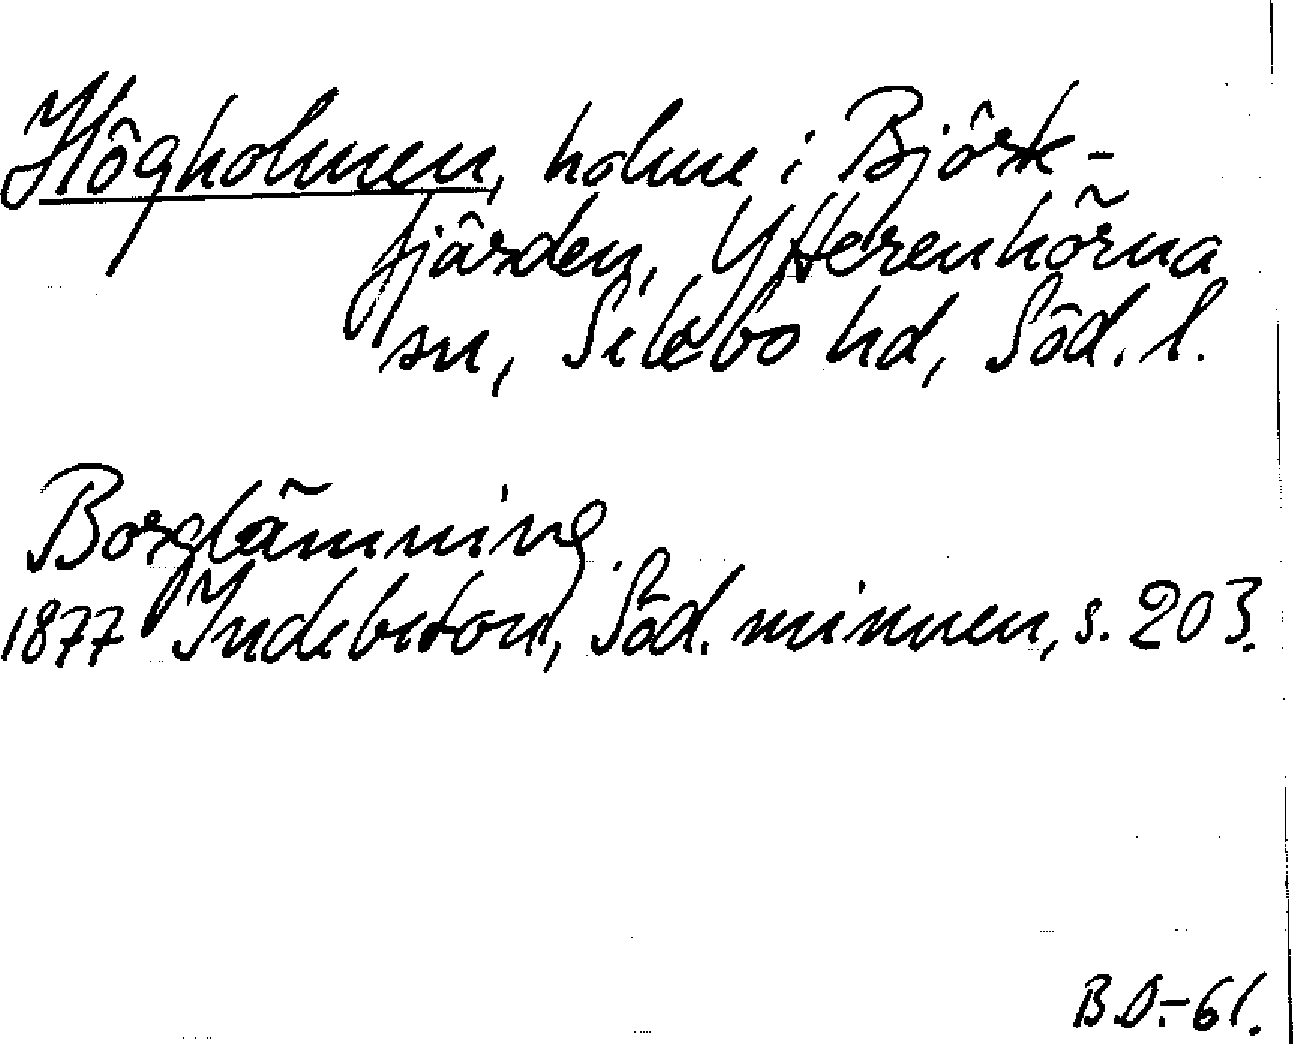 Högholmen, holme i Björk-
fjärden, Ytterenhörna
sn, Selebo hd, Söd. l.
Borglämning.
1877 Indebetou, Söd. minnen, s. 203.
B.D.-61.